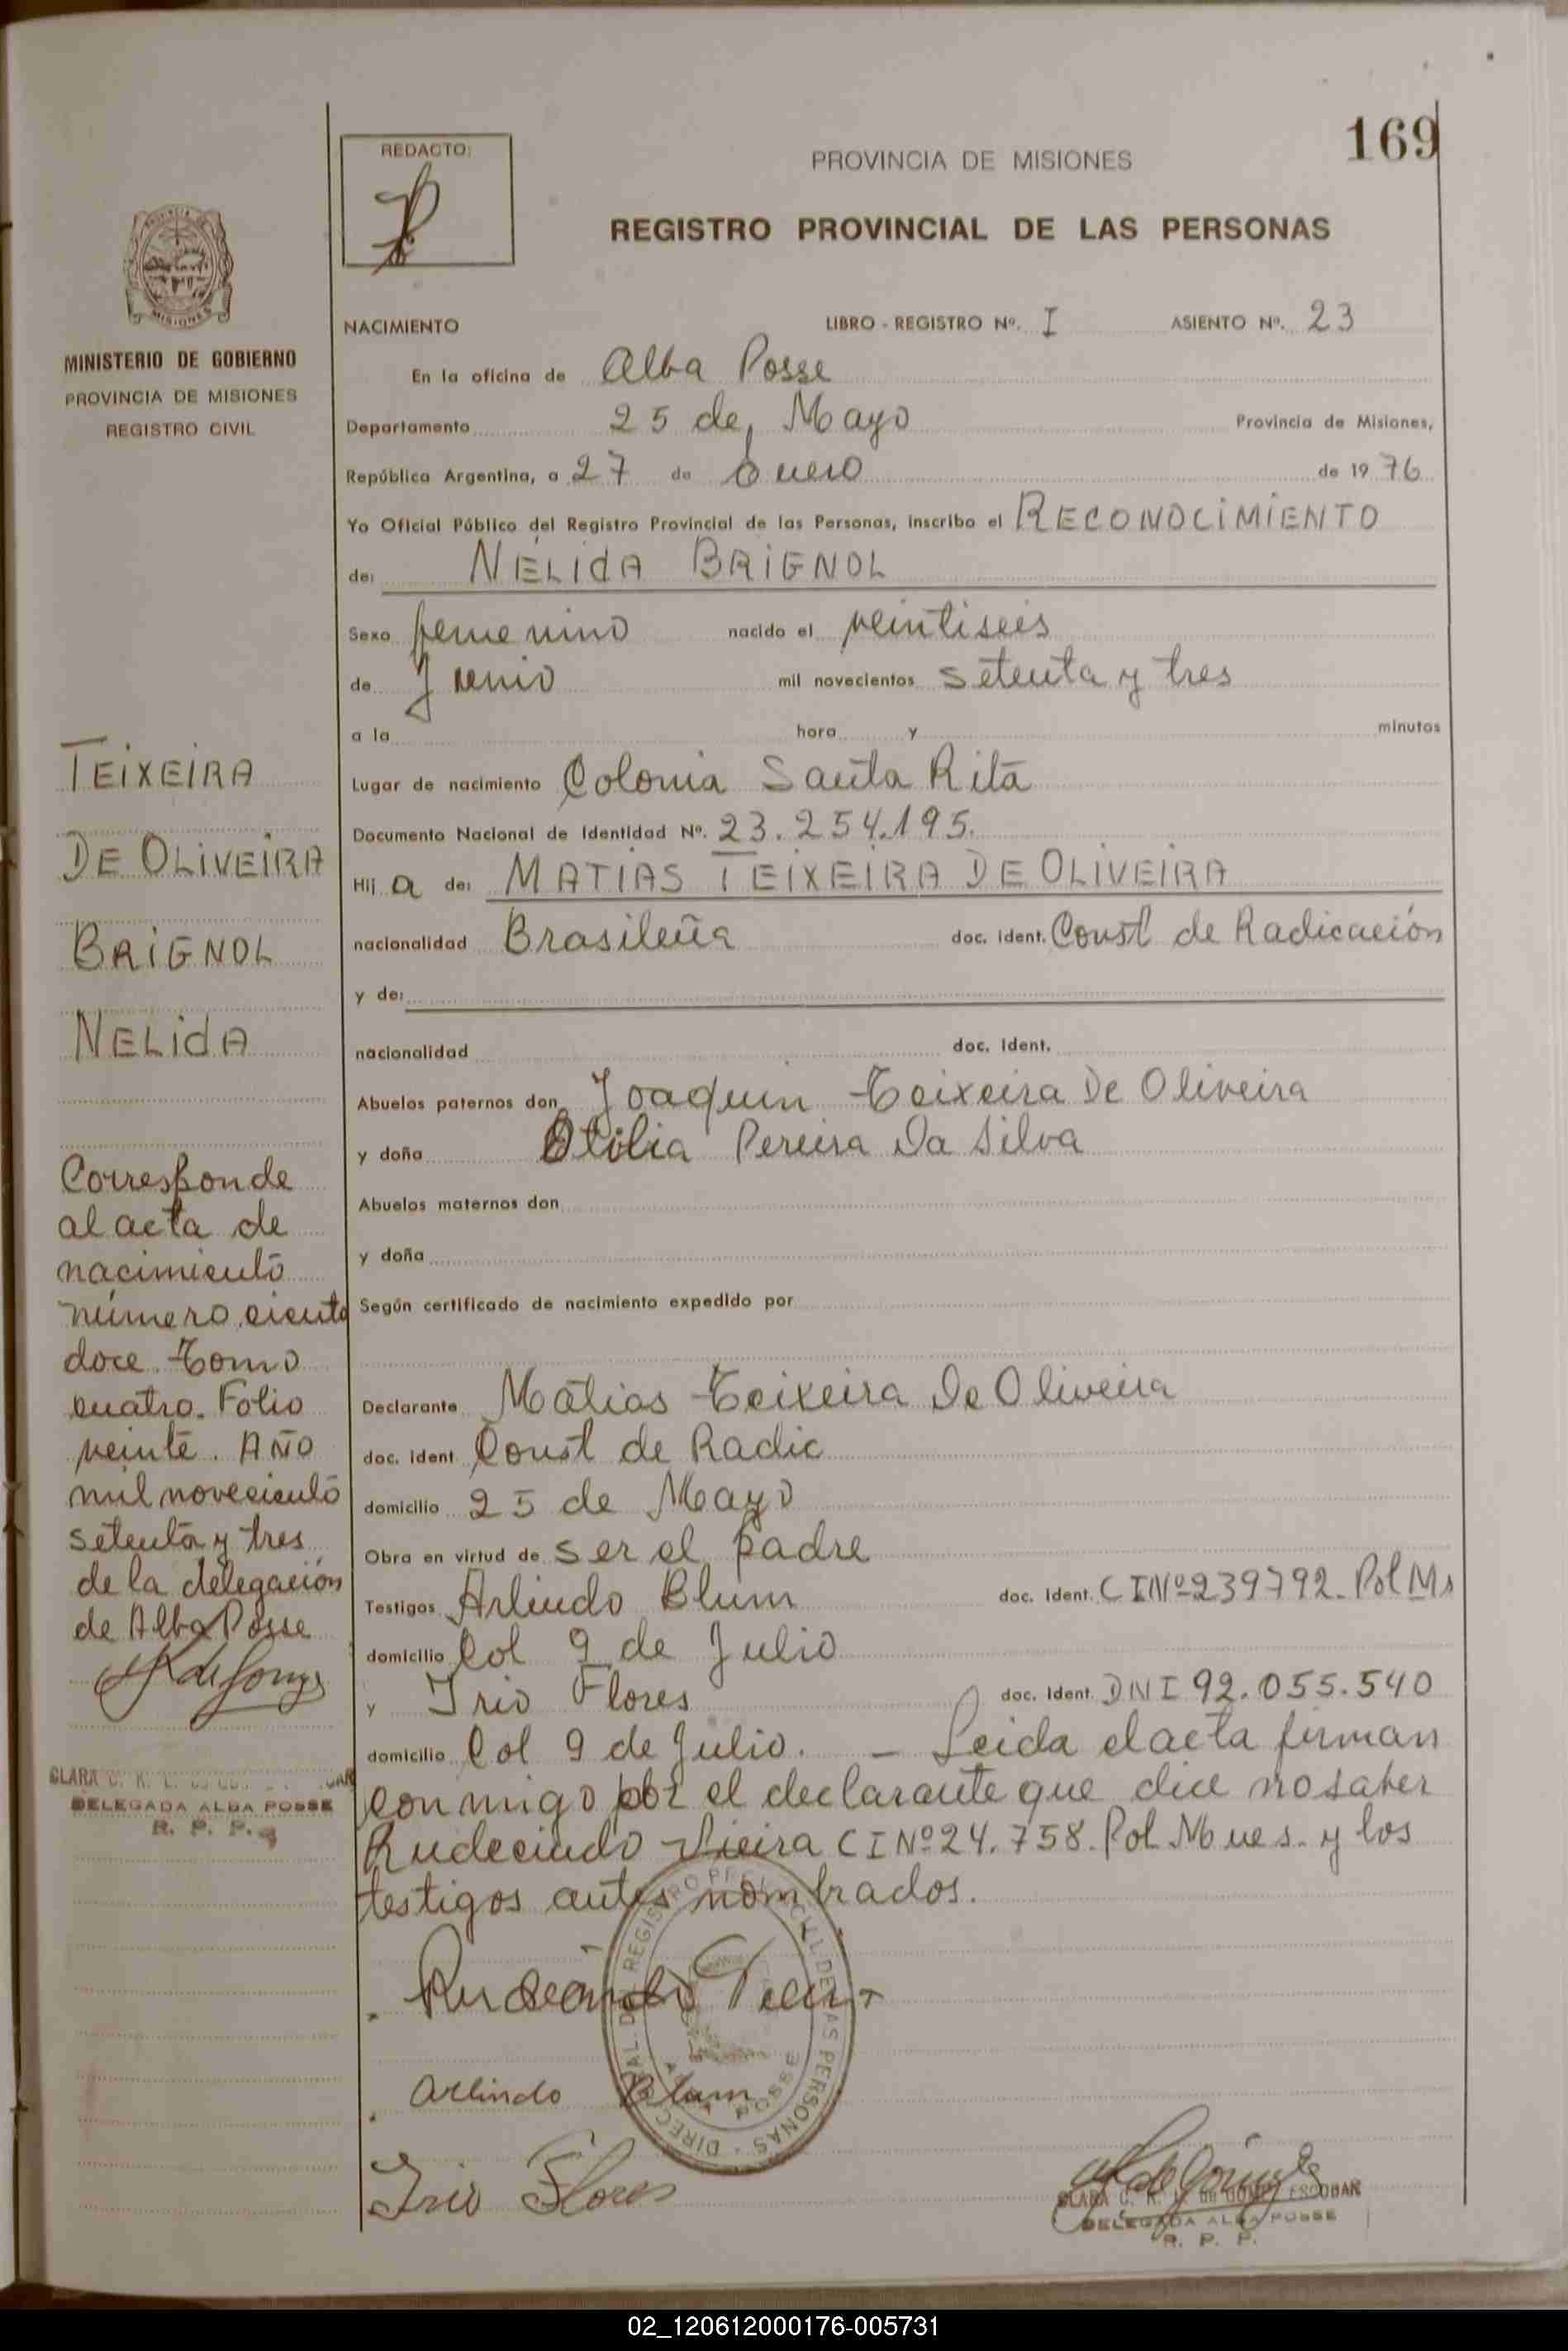 169
REDACTO:
PROVINCIA DE MISIONES
REGISTRO PROVINCIAL DE LAS PERSONAS
MISIONES
MINISTERIO DE GOBIERNO
PROVINCIA DE MISIONES
REGISTRO CIVIL
NACIMIENTO LIBRO - REGISTRO Nº. I ASIENTO Nº. 23
En la oficina de Alba Posse
Departamento 25 de Mayo Provincia de Misiones,
República Argentina, a 27 de Enero de 19 76
Yo Oficial Público del Registro Provincial de las Personas, inscribo el RECONOCIMIENTO
de: NÉLIDA BRIGNOL
Sexo femenino nacido el veintiseis
de Junio mil novecientos setenta y tres
a la hora y minutos
Lugar de nacimiento Colonia Santa Rita
Documento Nacional de Identidad Nº. 23.254.195.
Hij a de: MATIAS TEIXEIRA DE OLIVEIRA
nacionalidad Brasileña doc. ident. Const de Radicación
y de:
nacionalidad doc. ident.
Abuelos paternos don Joaquin Teixeira De Oliveira
y doña Otilia Pereira Da Silva
Abuelos maternos don
y doña
Según certificado de nacimiento expedido por
Declarante Matias Teixeira De Oliveira
doc. ident Const de Radic
domicilio 25 de Mayo
Obra en virtud de ser el padre
Testigos Arlindo Blum doc. ident. CINº239792. Pol Ms
domicilio Col 9 de Julio
y Irio Flores doc. ident. DNI 92.055.540
domicilio Col 9 de Julio. _ Leida el acta firman
conmigo por el declarante que dice no saber
Rudecindo Vieira CINº24.758. Pol Mnes. y los
testigos antes nombrados.
TEIXEIRA
DE OLIVEIRA
BRIGNOL
NELIDA
Corresponde
al acta de
nacimiento
número ciento
doce Tomo
cuatro. Folio
veinte. AÑO
mil noveciento
setenta y tres
de la delegación
de Alba Posse
CLARA C.
DELEGADA ALBA POSSE
R. P. P.
Arlindo Blum
Irio Flores
CLARA C. ESCOBAR
DELEGADA ALBA POSSE
R. P. P.
02_120612000176-005731